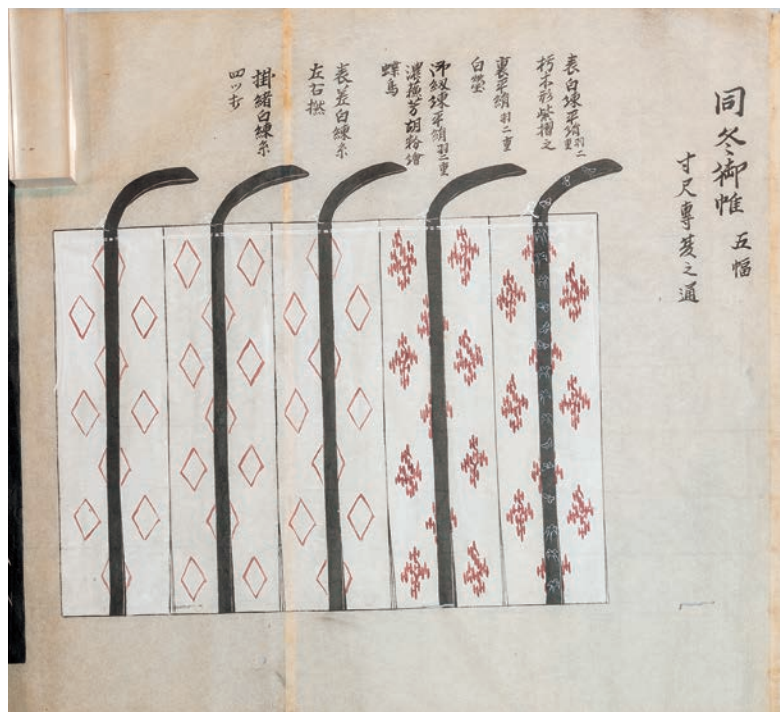 同冬御帷 五幅
寸尺專夏之通
表白練平絹羽二重
朽木形紫摺之
裏平絹羽二重
白瑩
御紐練平絹羽二重
濃蘇芳胡粉繪
蝶鳥
表差白練糸
左右撚
掛緒白練糸
四ツ打